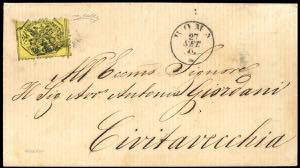 ROMA
27
SET
All Ecc̃mo Signore
Il Sig Avv Antonio Giordani
Civitavecchia